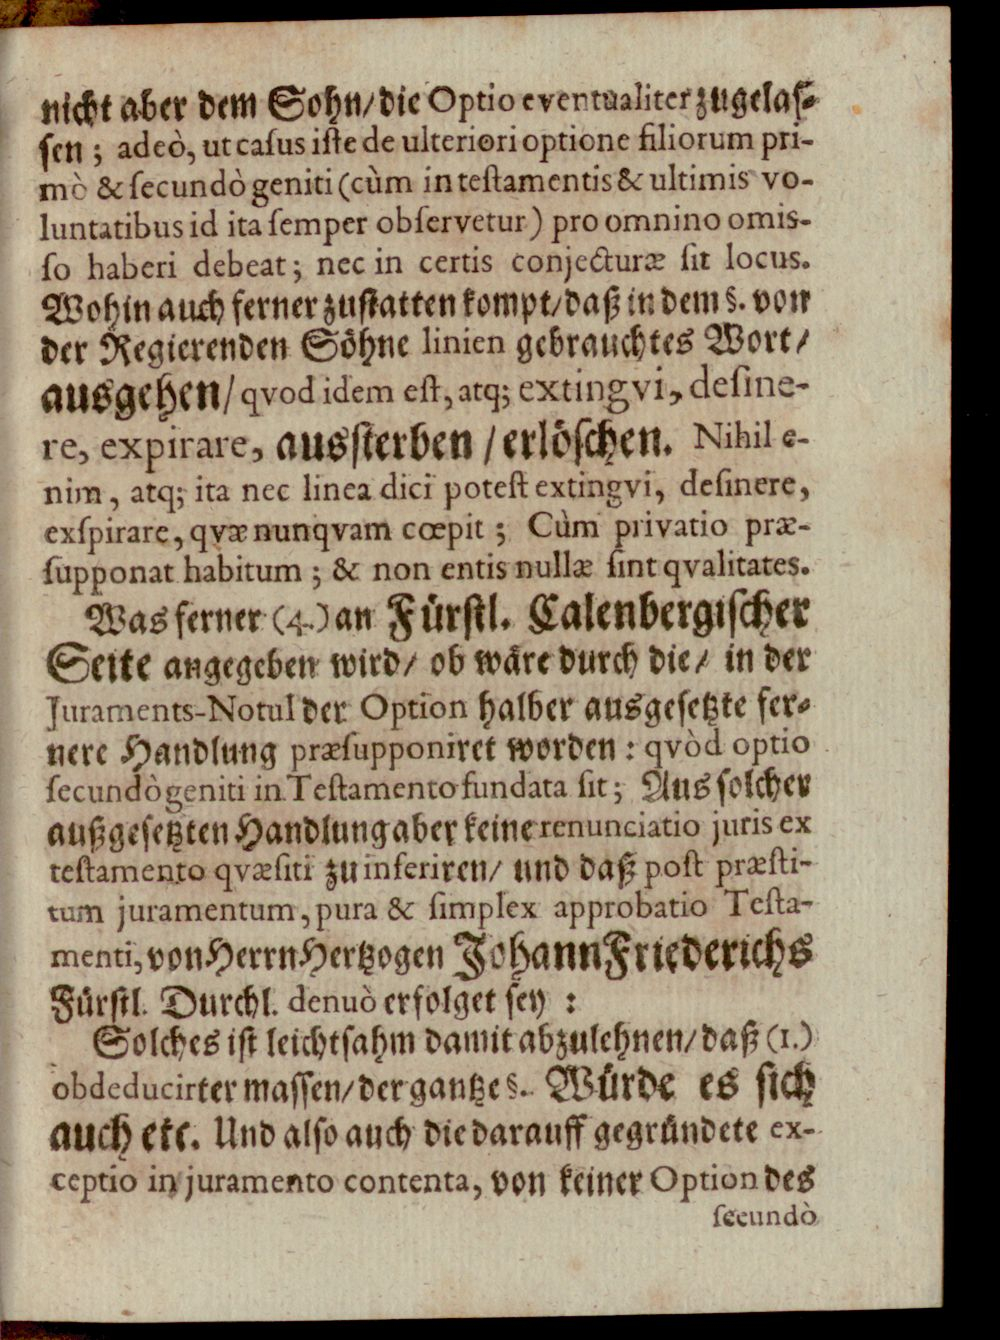 nicht aber dem Sohn/die Optio eventualiter zugelas⸗
sen; adeò, ut casus iste de ulteriori optione filiorum pri-
mò & secundò geniti (cùm in testamentis & ultimis vo-
luntatibus id ita semper observetur) pro omnino omis-
so haberi debeat; nec in certis conjecturæ sit locus.
Wohin auch ferner zustatten kompt/daß in dem §. von
der Regierenden Söhne linien gebrauchtes Wort/
ausgehen/ qvod idem est, atq; extingvi, desine-
re, expirare, aussterben /erlöschen. Nihil e-
nim, atq; ita nec linea dici potest extingvi, desinere,
exspirare, qvæ nunqvam cœpit; Cùm privatio præ-
supponat habitum; & non entis nullæ sint qvalitates.
Was ferner (4.) an Fürstl. Calenbergischer
Seite angegeben wird/ ob wäre durch die/ in der
Juraments-Notul der Option halber ausgesetzte fer⸗
nere Handlung præsupponiret worden: qvòd optio
secundò geniti in Testamento fundata sit; Aus solcher
außgesetzten Handlung aber keine renunciatio juris ex
testamento qvæsiti zu inferiren/ und daß post præsti-
tum juramentum, pura & simplex approbatio Testa-
menti, von Herrn Hertzogen Johann Friederichs
Fürstl. Durchl. denuò erfolget sey :
Solches ist leichtsahm damit abzulehnen/daß (1.)
obdeducirter massen/der gantze §. Würde es sich
auch etc. Und also auch die darauff gegründete ex-
ceptio in juramento contenta, von keiner Option des
secundò